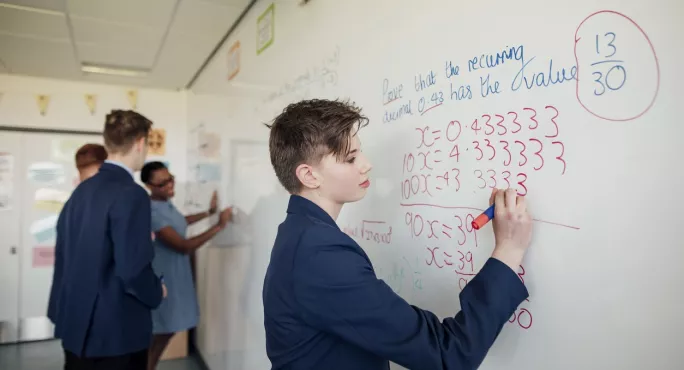 Prove that the recurring
decimal 0.43 has the value
13
30
x=0.4333333
10x=4.3333333
100x=43.3333
90x=39
x=39